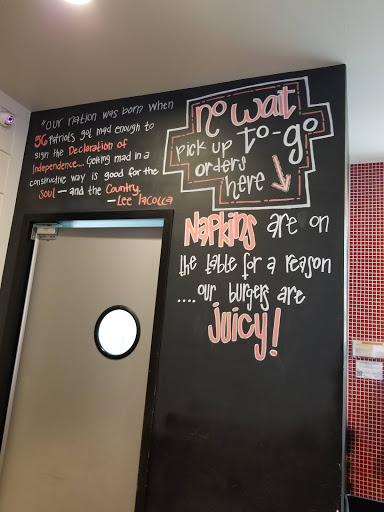 "Our nation was born when
56 Patriots got mad enough to
sign the Declaration of
Independence... Getting mad in a
constructive way is good for the
Soul — and the Country.
— Lee Iacocca
no wait
pick up to-go
orders
here
Napkins are on
the table for a reason
....our burgers are
Juicy!